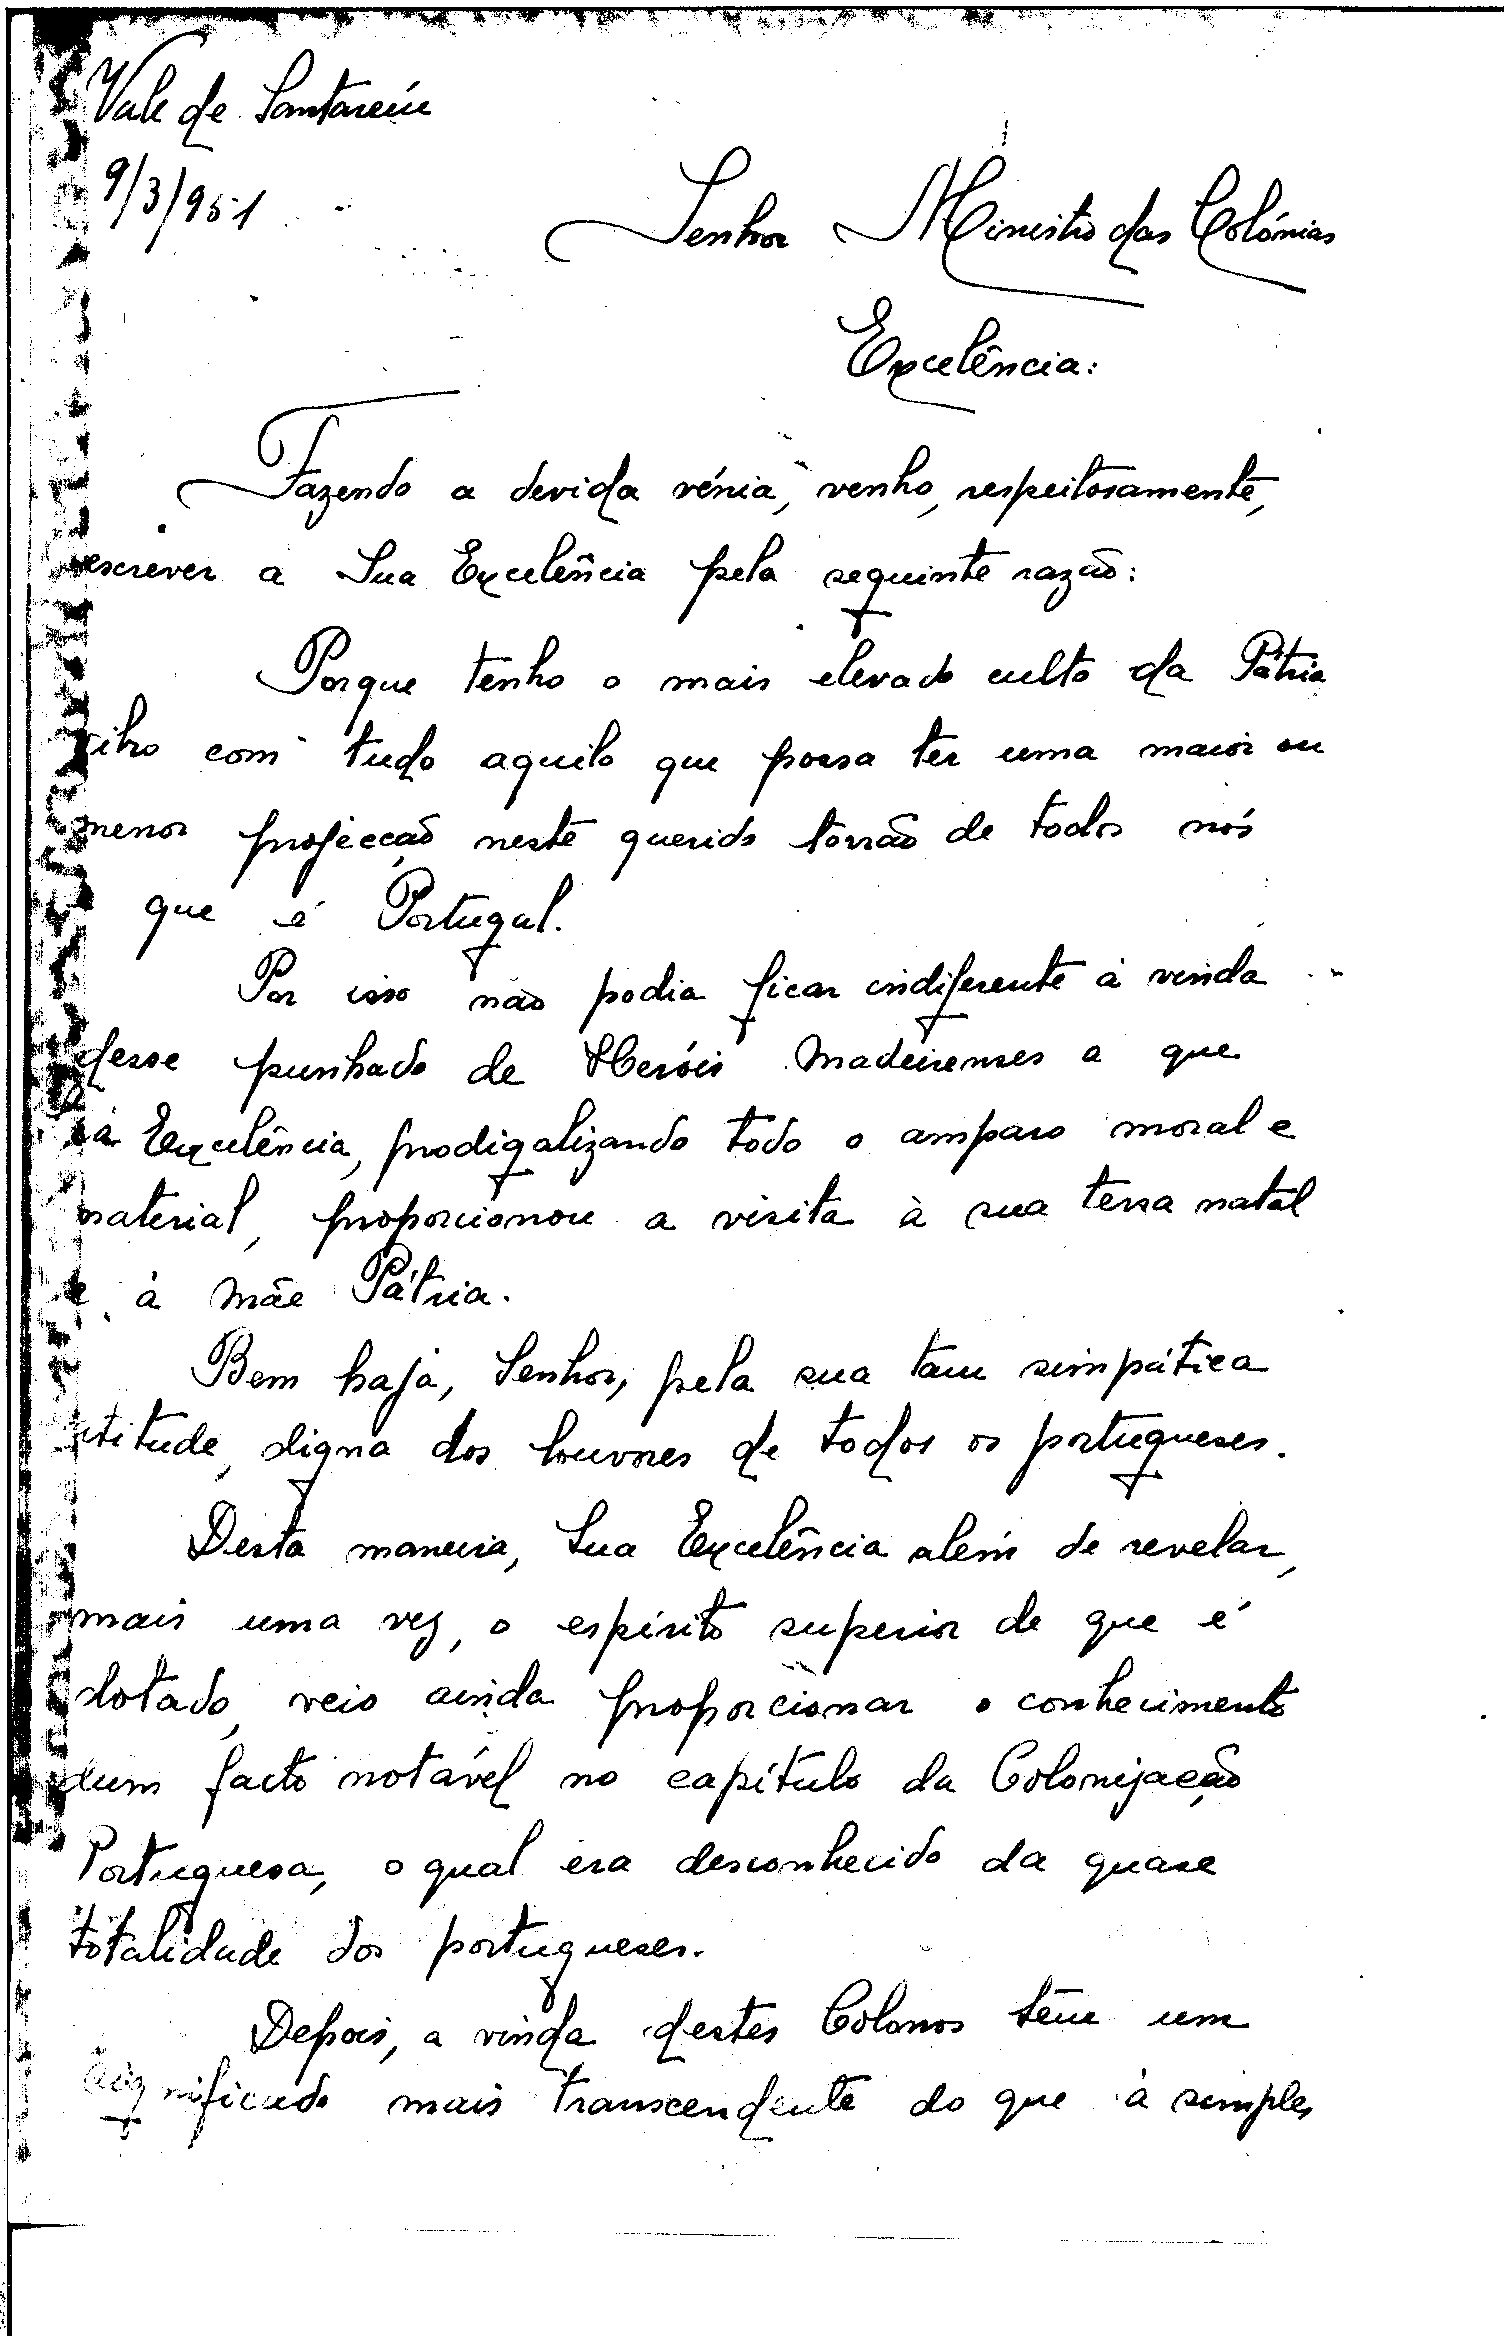 Vale de Santarém
9/3/951
Senhor Ministro das Colónias
Excelência:
Fazendo a devida vénia, venho, respeitosamente,
escrever a Sua Excelência pela seguinte razão:
Porque tenho o mais elevado culto da Pátria
com tudo aquilo que possa ter uma maior ou
menor projecção neste querido torrão de todos nós
que é Portugal.
Por isso não podia ficar indiferente à vinda
desse punhado de Heróis Madeirenses a que
Excelência, prodigalizando todo o amparo moral e
material, proporcionou a visita à sua terra natal
e à Mãe Pátria.
Bem haja, Senhor, pela sua tam simpática
atitude, digna dos louvores de todos os portugueses.
Desta maneira, Sua Excelência além de revelar,
mais uma vez, o espírito superior de que é
dotado, veio ainda proporcionar o conhecimento
dum facto notável no capítulo da Colonização
Portuguesa, o qual era desconhecido da quase
totalidade dos portugueses.
Depois, a vinda destes Colonos têm um
significado mais transcendente do que à simples